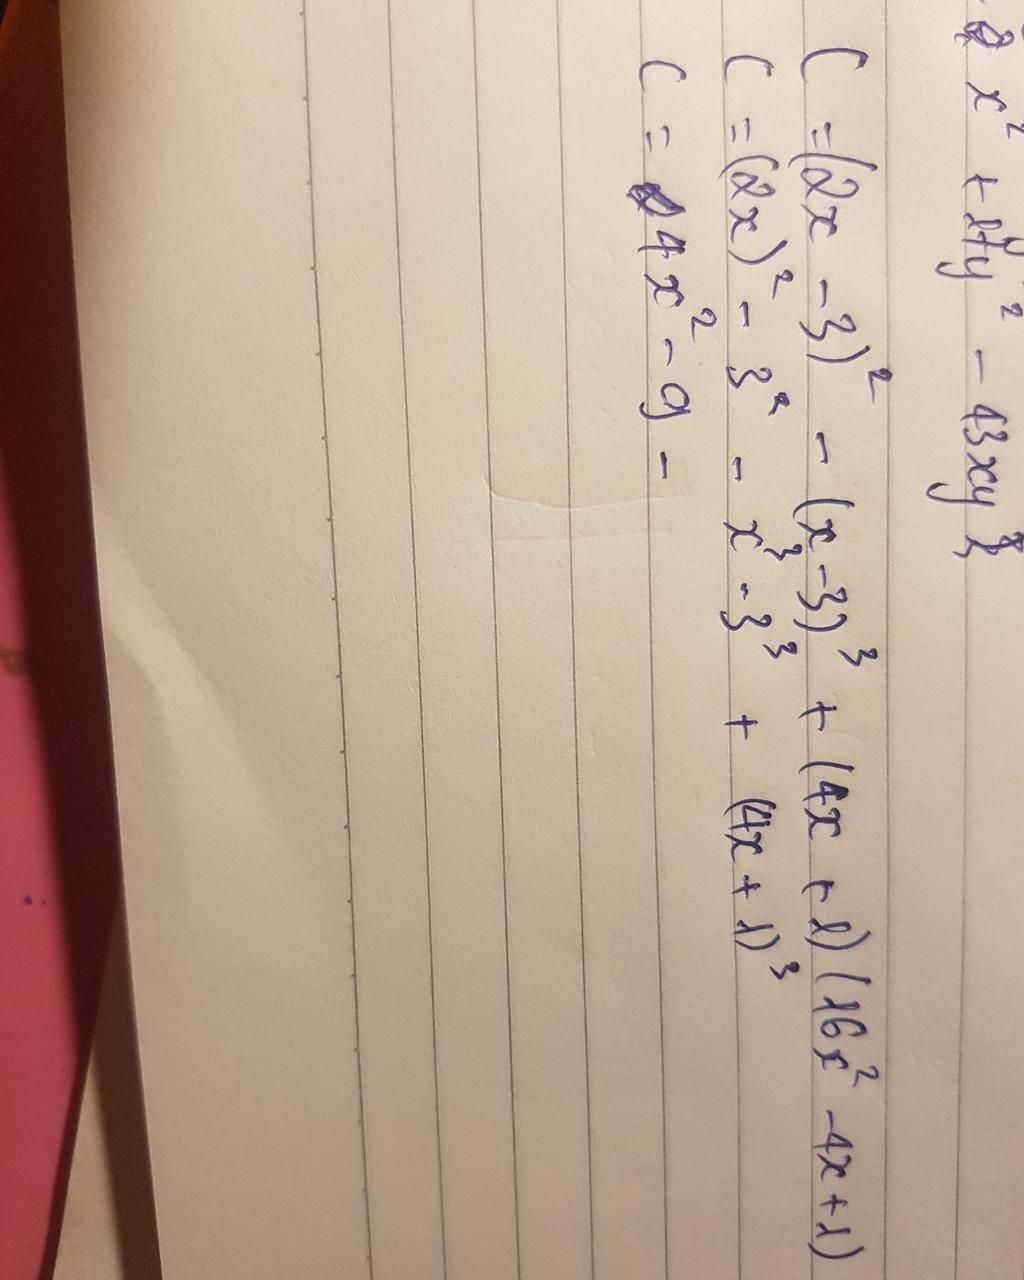 x² + 27y² - 43xy
C = (2x - 3)² - (x - 3)³ + (4x + 1)(16x² - 4x + 1)
C = (2x)² - 3² - x³ - 3³ + (4x + 1)³
C = 4x² - 9 -